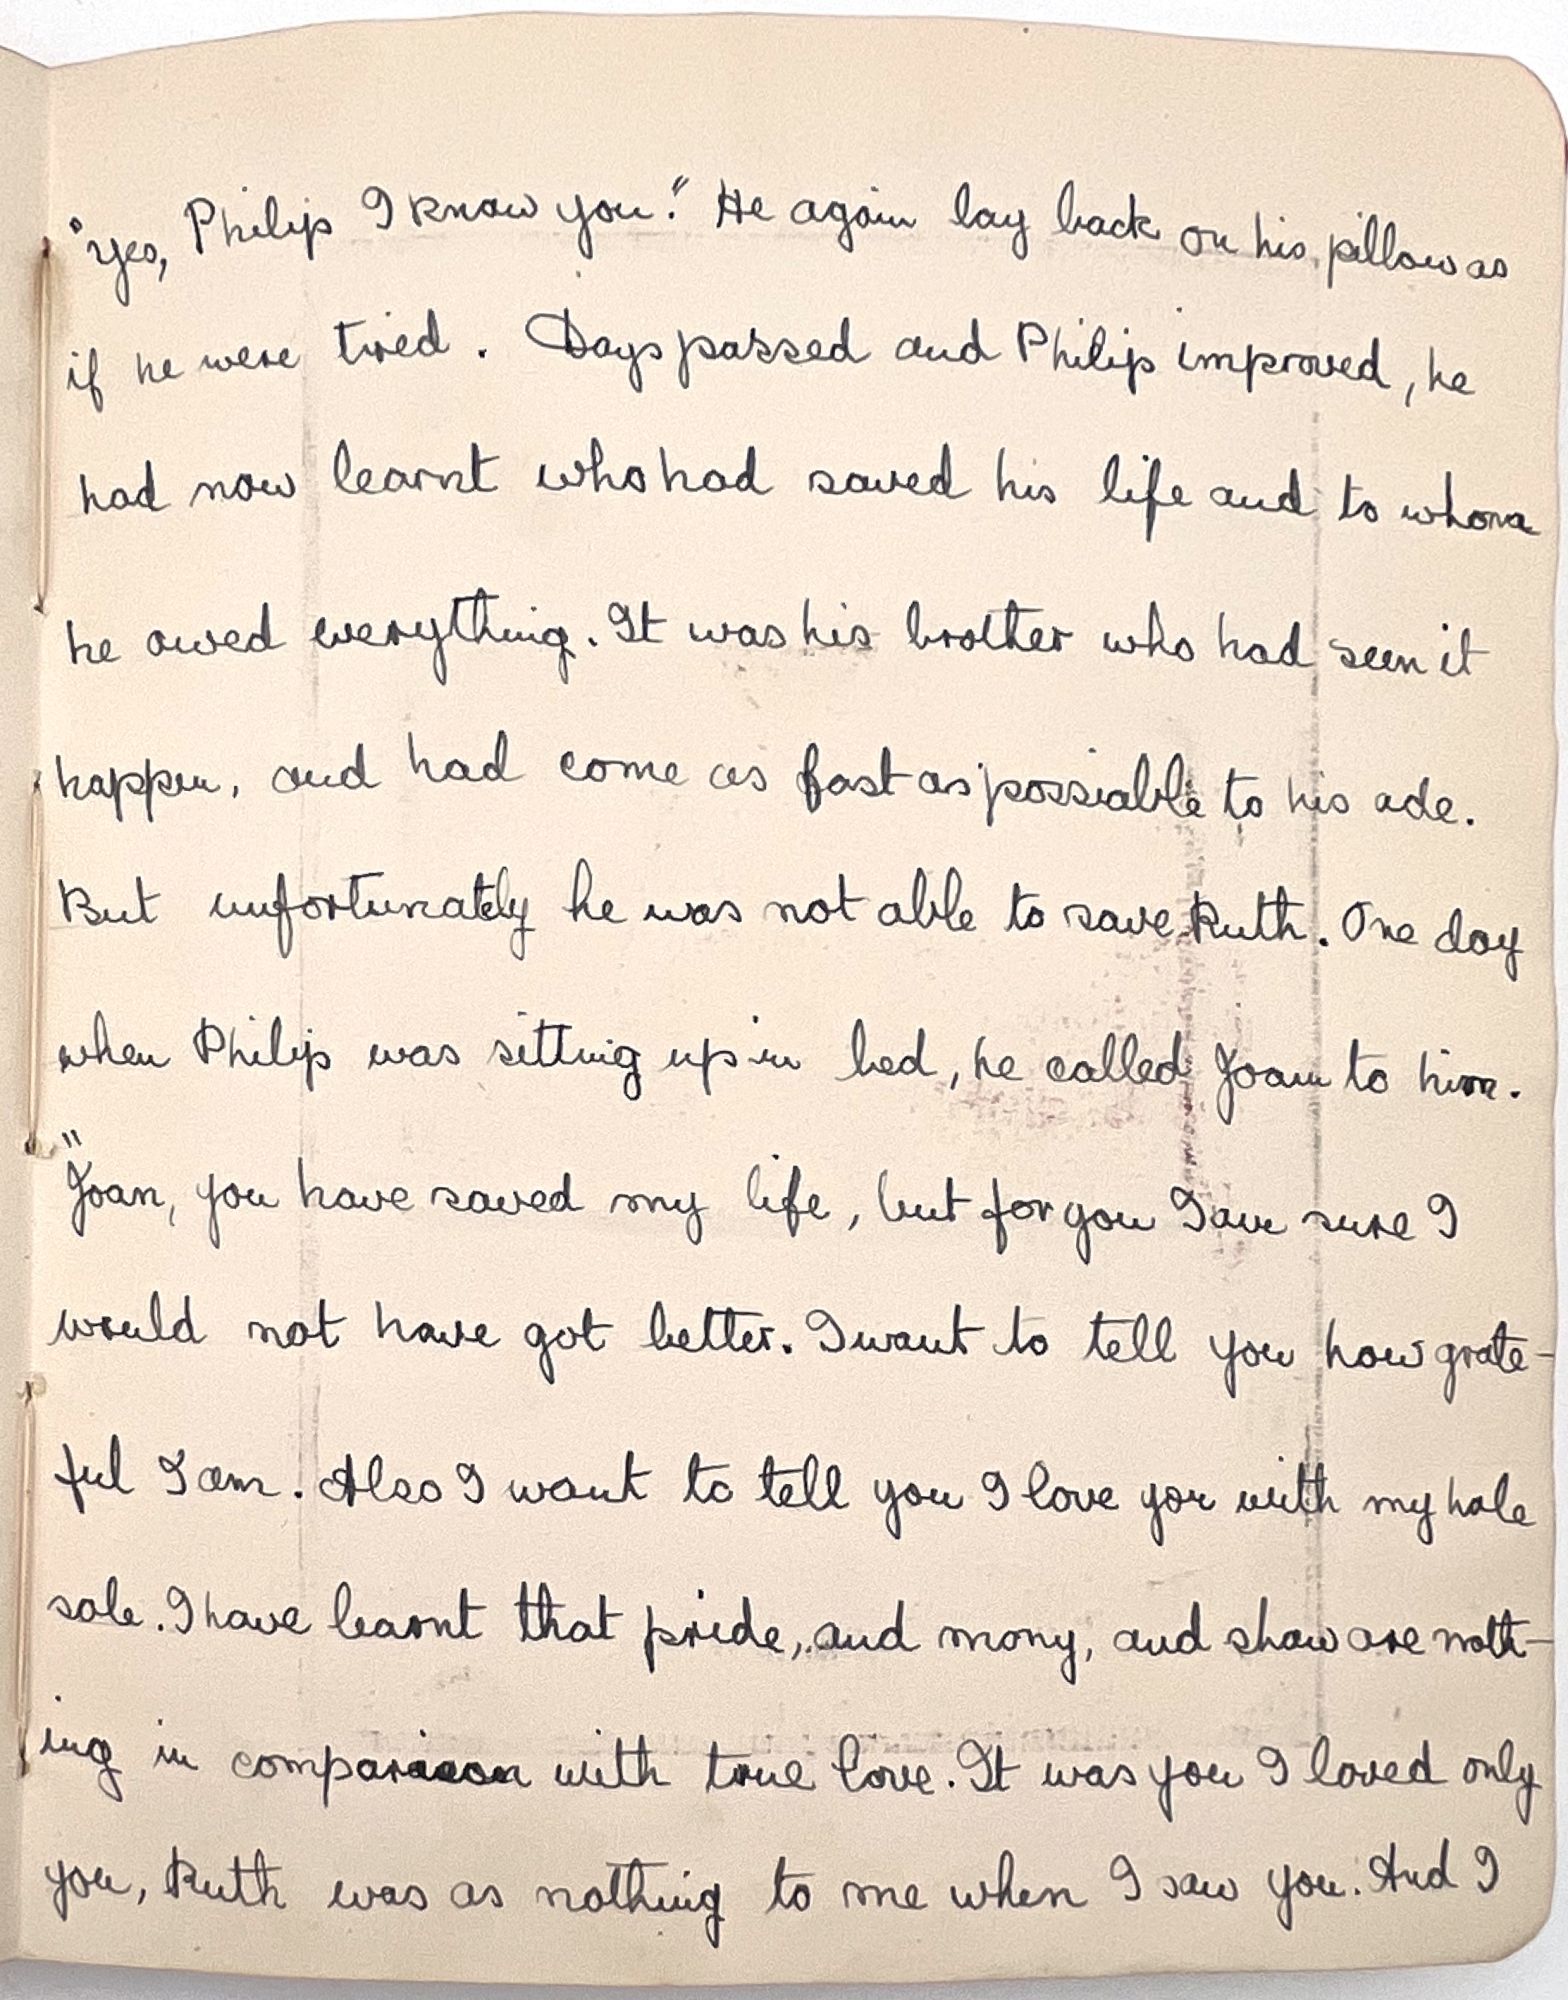 "Yes, Philip I know you." He again lay back on his pillow as
if he were tired. Days passed and Philip improved, he
had now learnt who had saved his life and to whom
he owed everything. It was his brother who had seen it
happen, and had come as fast as possiable to his ade.
But unfortunately he was not able to save Ruth. One day
when Philip was sitting up in bed, he called Joan to him.
"Joan, you have saved my life, but for you I am sure I
would not have got better. I want to tell you how grate-
ful I am. Also I want to tell you I love you with my hole
sole. I have learnt that pride, and mony, and show are noth-
ing in comparison with true love. It was you I loved only
you, Ruth was as nothing to me when I saw you. And I